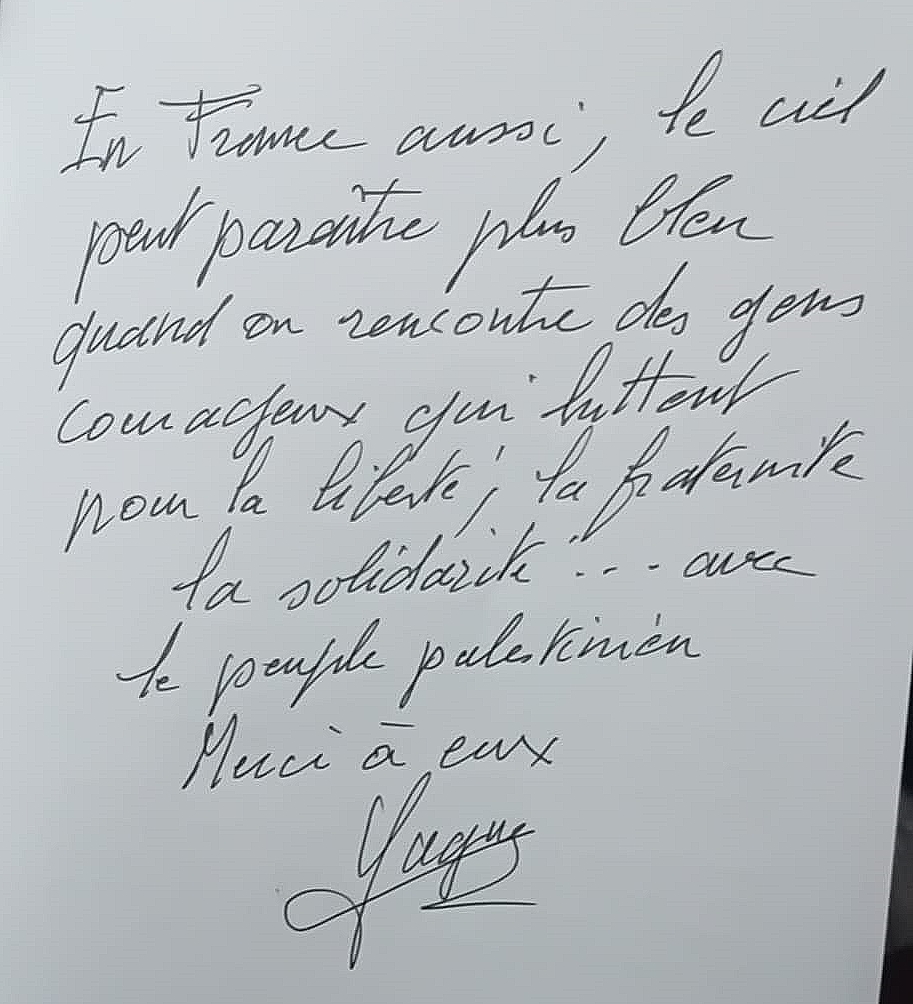 En France aussi, le ciel
peut paraître plus bleu
quand on rencontre des gens
courageux qui luttent
pour la liberté, la fraternité
la solidarité... avec
le peuple palestinien
Merci à eux